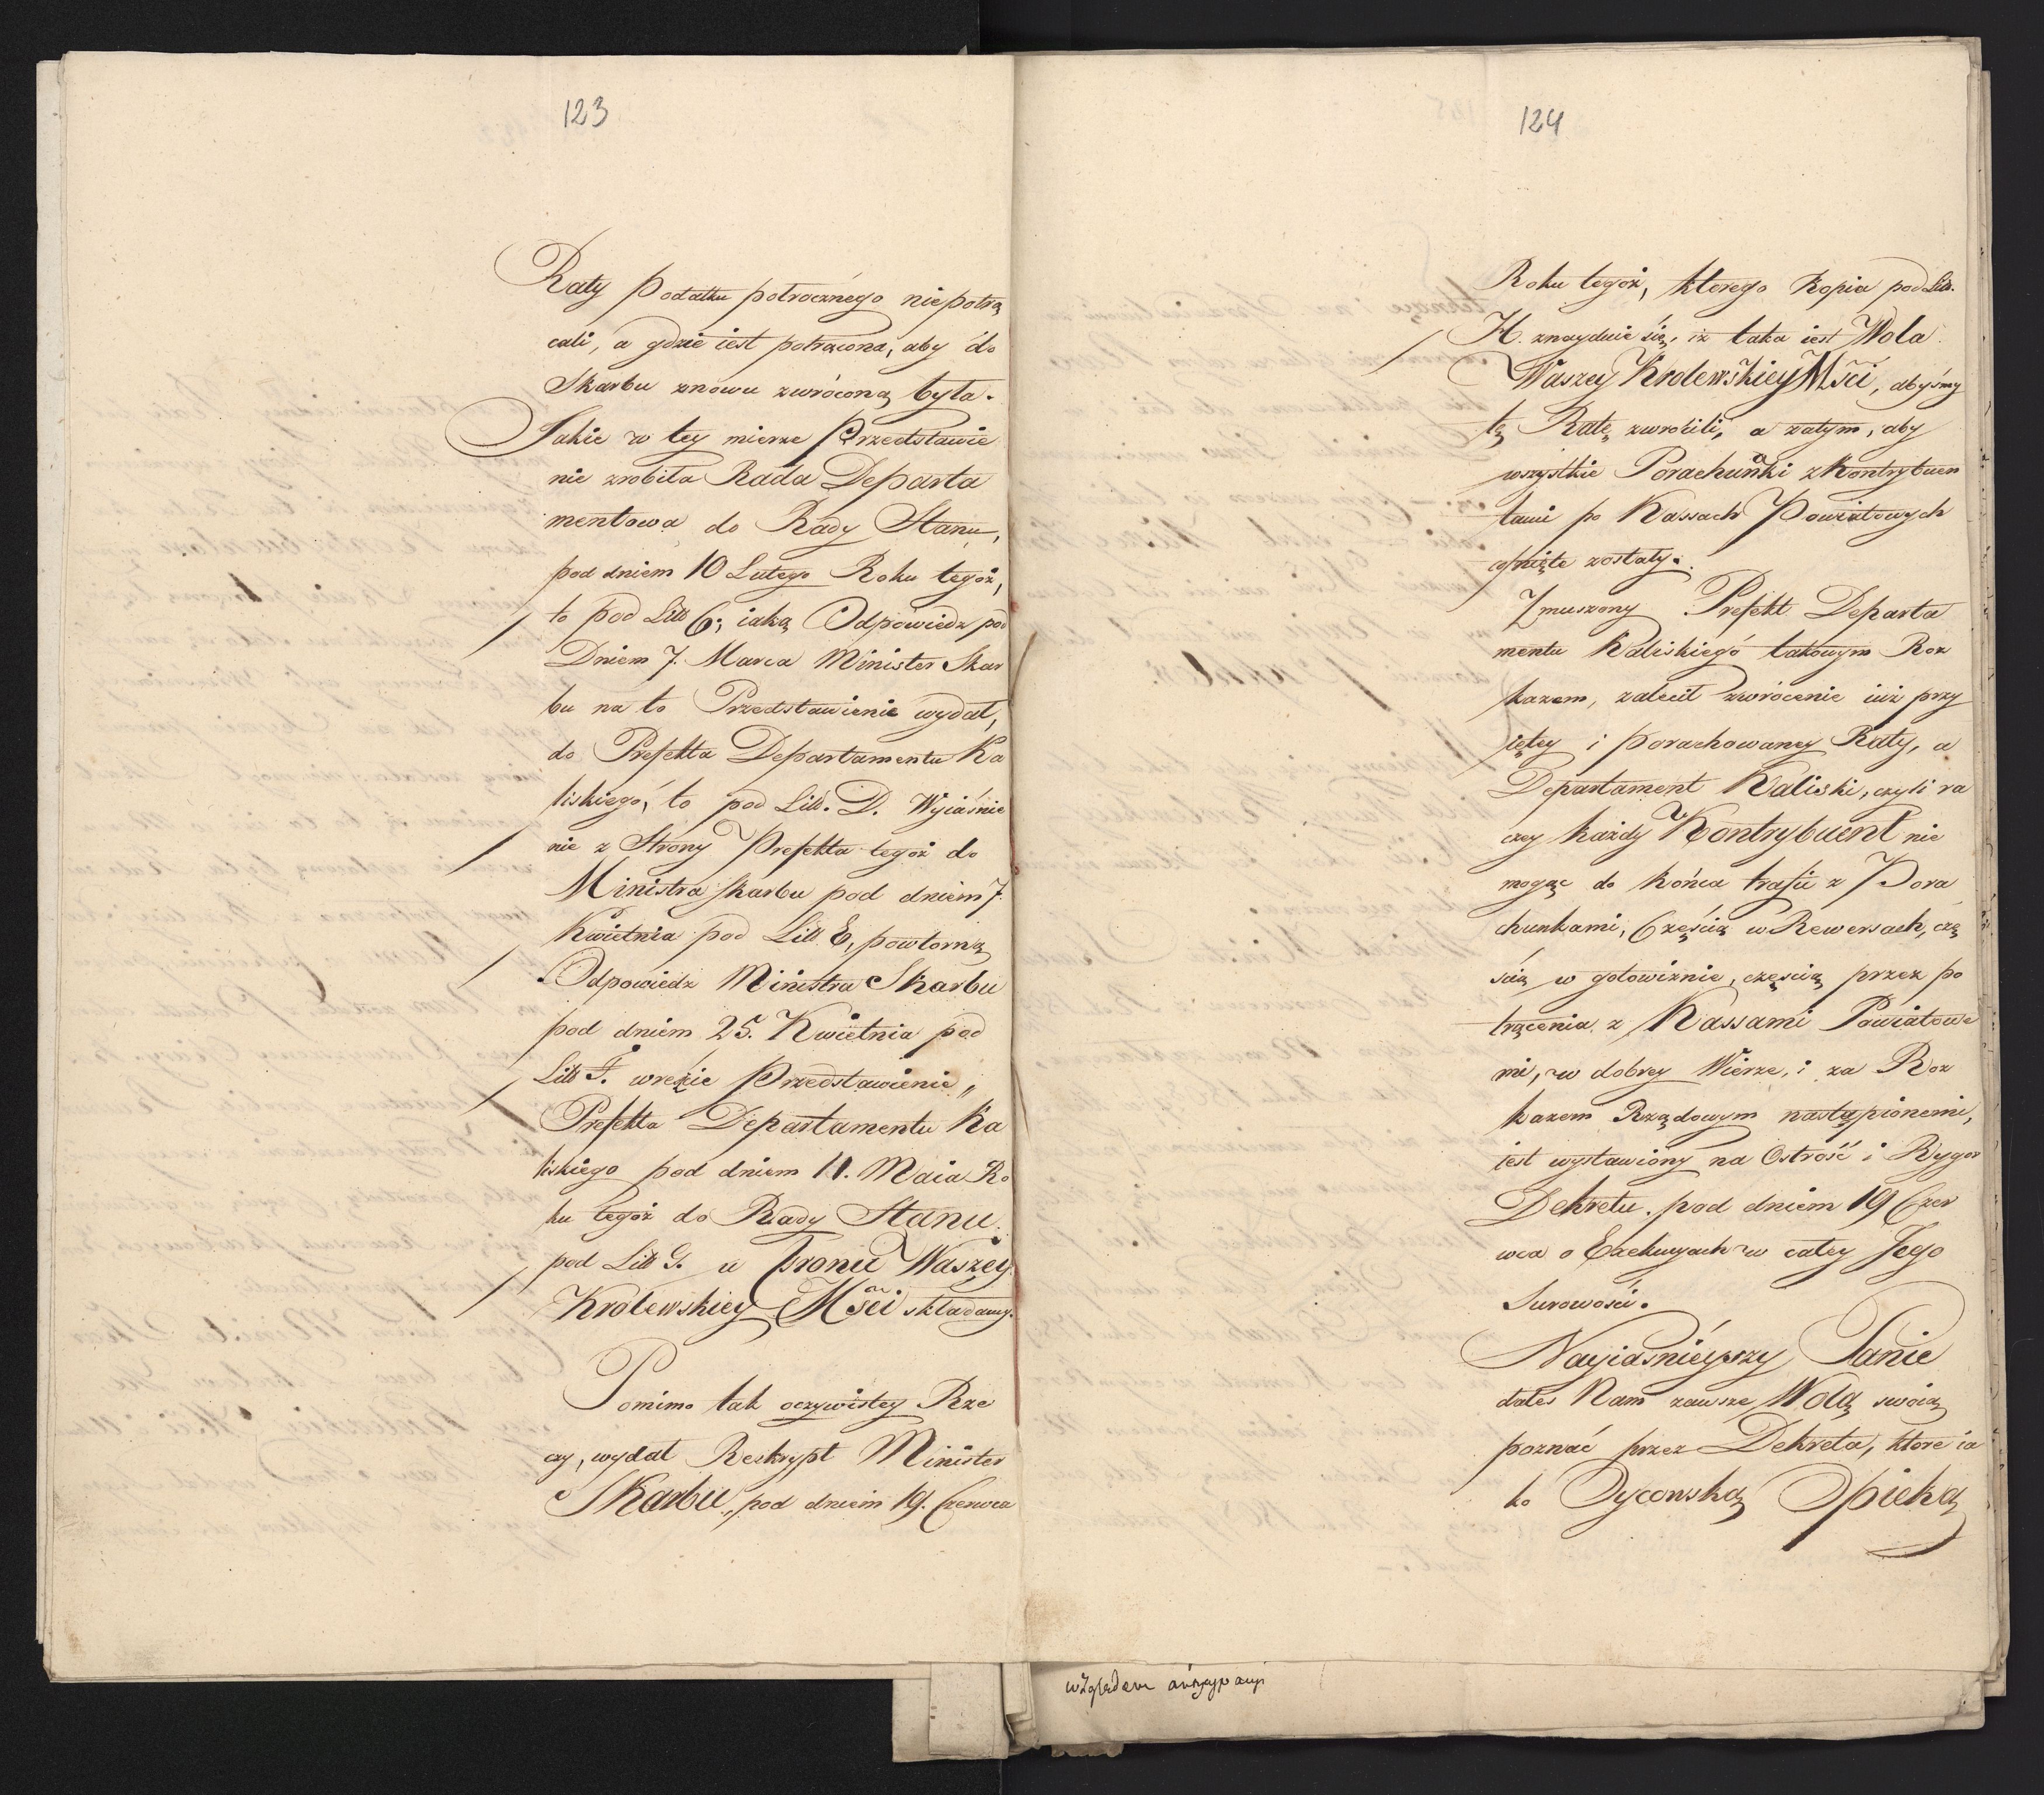 123
Raty Podatku potrocznego niepotrą
cali, a gdzie iest potrącona, aby do
Skarbu znowu zwróconą była.
Jakie w tey mierze Przedstawie
nie zrobiła Rada Departa
mentowa do Rady Stanu,
pod dniem 10 Lutego Roku tegoż,
to pod Litt C; iaką Odpowiedz pod
Dniem 7. Marca Minister Skar
bu na to Przedstawienie wydał,
do Prefekta Departamentu Ka
liskiego, to pod Litt. D. Wyiaśnie
nie z Strony Prefekta tegoż do
Ministra Skarbu pod dniem 7.
Kwietnia pod Litt E, powtorną
Odpowiedz Ministra Skarbu
pod dniem 25. Kwietnia pod
Litt F. wreście Przedstawienie„
Prefekta Departamentu Ka
liskiego pod dniem 11. Maia Ro
ku tegoż do Rady Stanu.
pod Litt G. u Tronu Waszey
Krolewskiey Mści składamy.
Pomimo tak oczywistey Rze
czy, wydał Reskrypt Minister
Skarbu, pod dniem 19. Czerwca
124
Roku tegoż, ktorego Kopia pod Litt.
H. znayduie się, iż taka iest Wola
Waszey Krolewskiey Mści, abyśmy
tę Ratę zwrocili, a zatym, aby
wszystkie Porachunki z Kontrybuen
tami po Kassach Powiatowych
cofnięte zostały.
Zmuszony Prefekt Departa
mentu Kaliskiego takowym Roz
kazem, zalecił zwrócenie iuż przy
iętey i porachowaney Raty, a
Departament Kaliski, czyli ra
czey każdy Kontrybuent nie
mogąc do końca trafić z Pora
chunkami, Częścią w Rewersach, czę
ścią w gotowiznie, częscią przez po
trącenia z Kassami Powiatowe
mi, w dobrey Wierze, i za Roz
kazem Rządowym nastąpionemi,
iest wystawiony na Ostrość i Rygor
Dekretu pod dniem 19 Czer
wca o Exekucyach w całey Jego
Surowości.
Nayiaśnieyszy Panie
dałeś Nam zawsze Wolą swoią
poznać przez Dekreta, ktore ia
ko Oycowską Opieką
względem